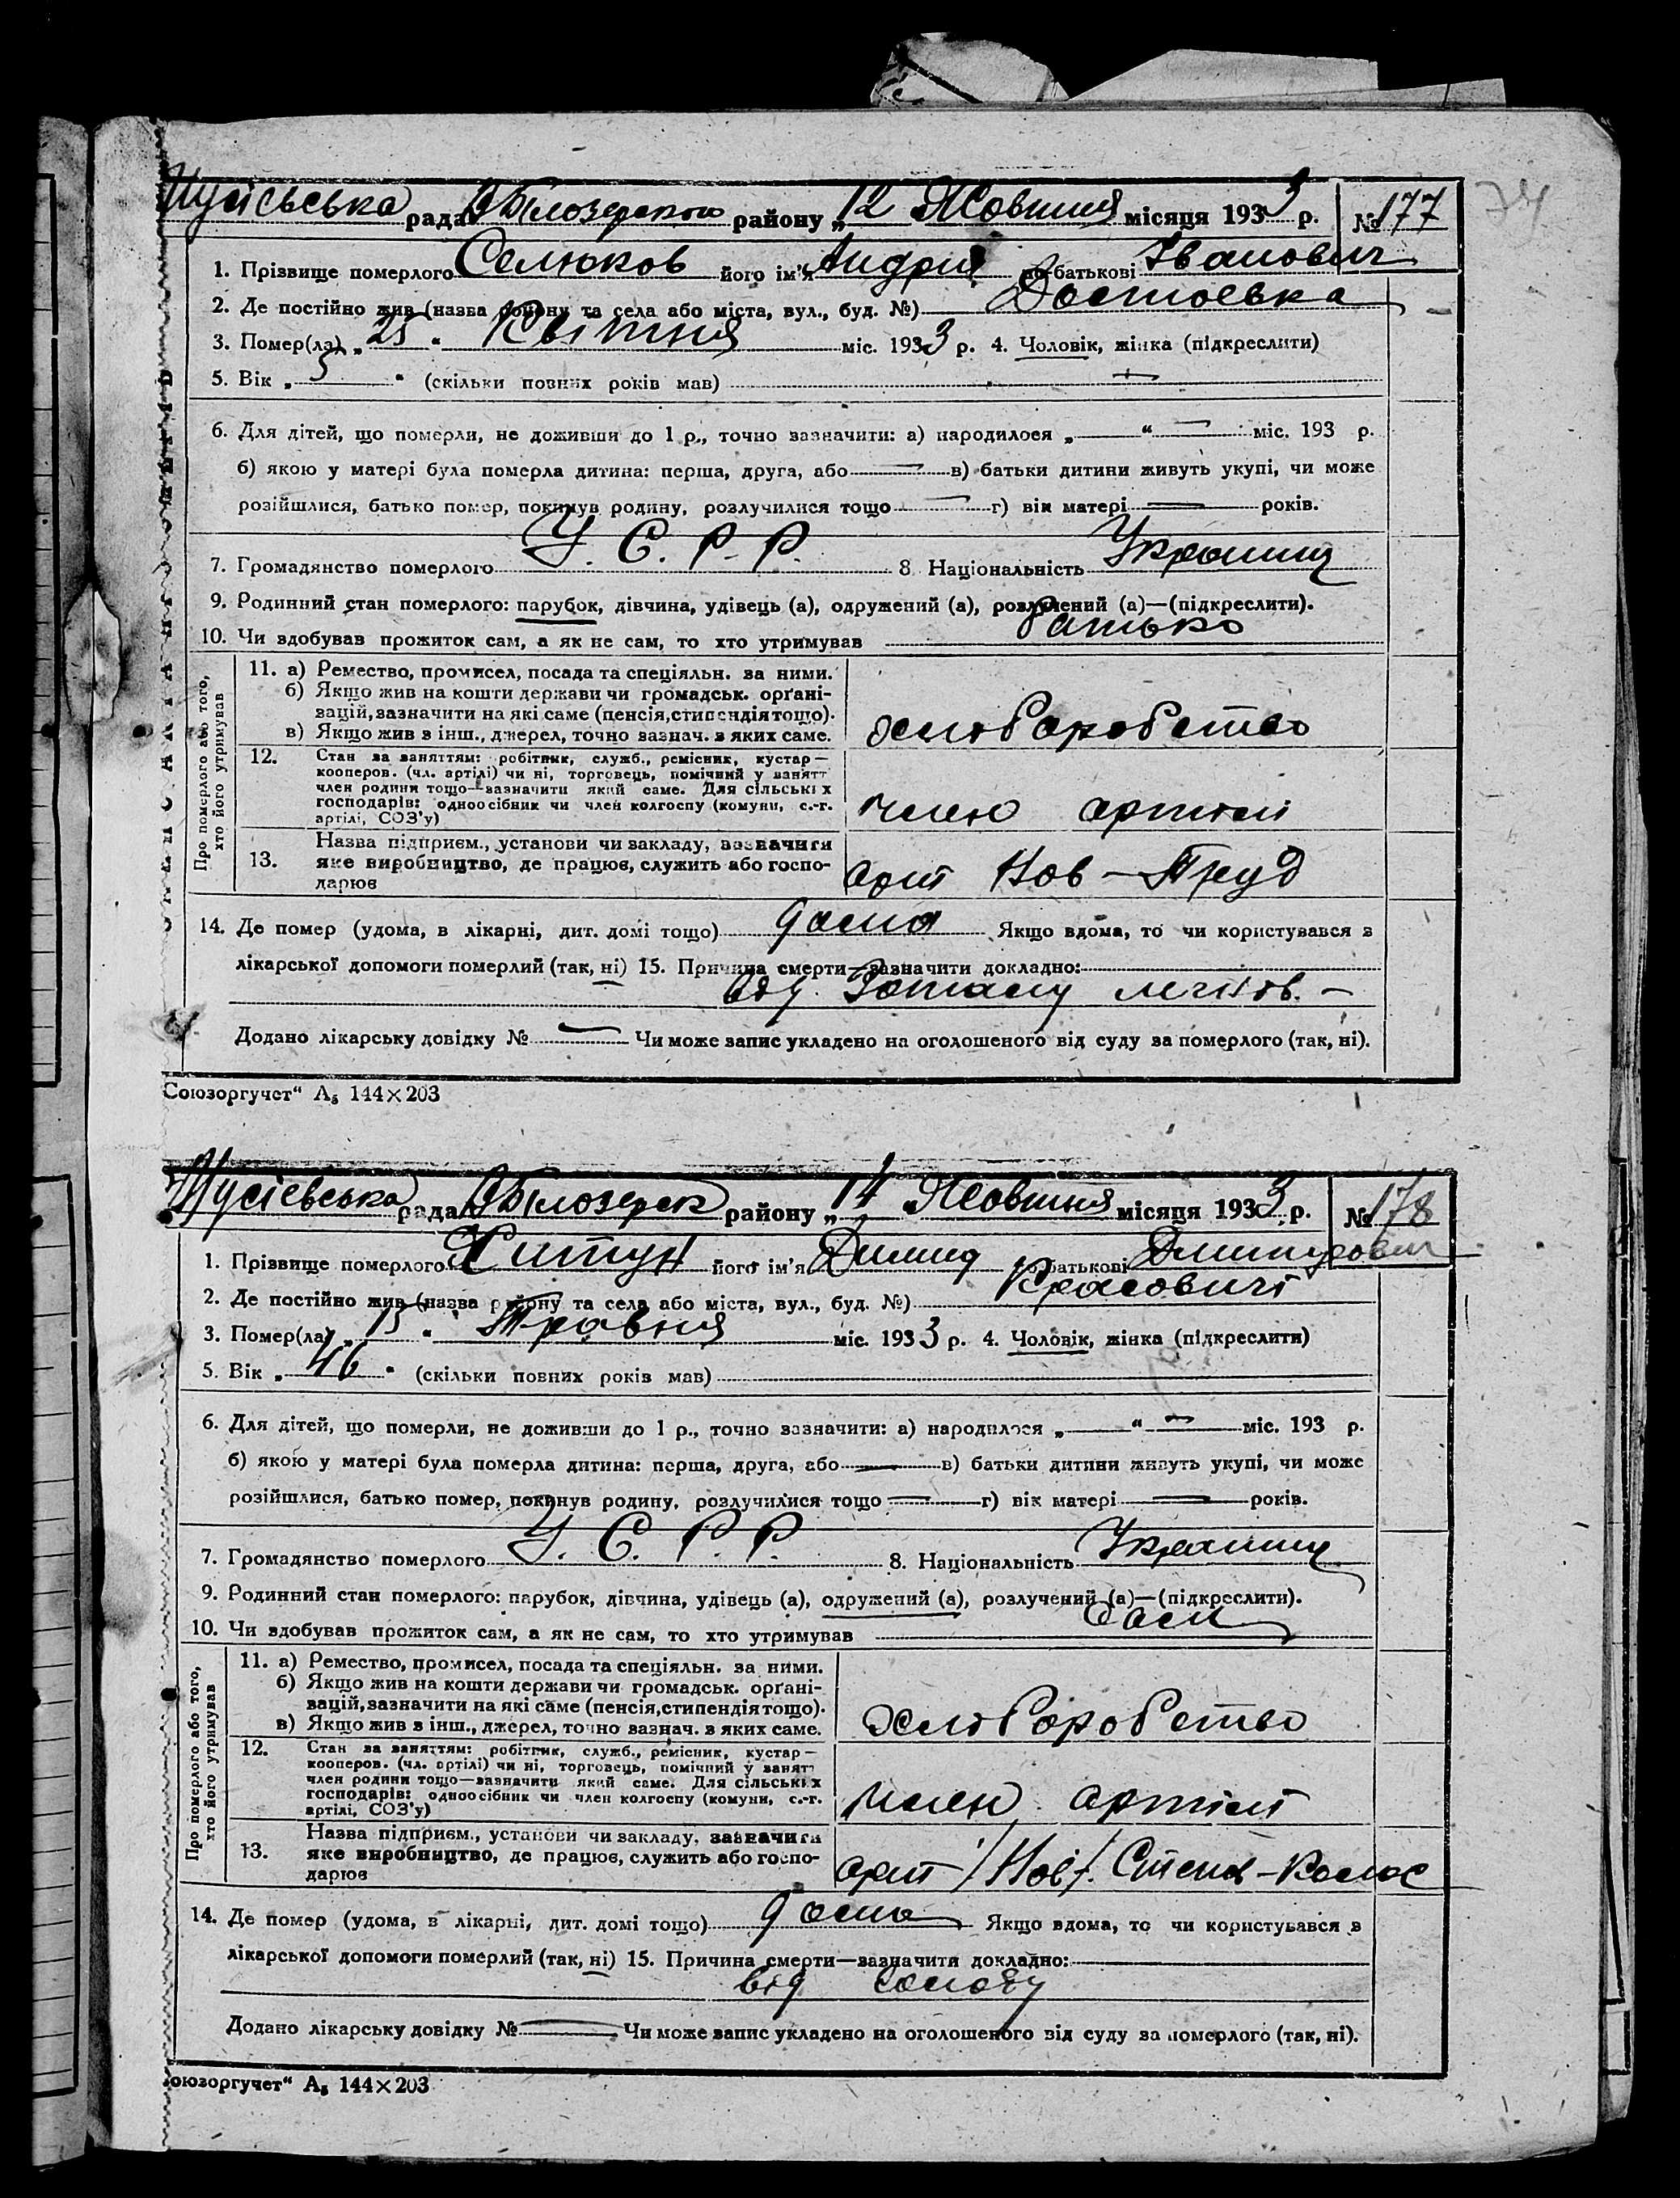 рада Білозерского району „12 Жовтня місяця 1933 р. № 177
74
1. Прізвище померлого Селюков його ім'я Андрій по батькові Іванович
2. Де постійно жив (назва району та села або міста, вул., буд. №)
3. Помер(ла) „25" Квітня міс. 1933 р. 4. Чоловік, жінка (підкреслити)
5. Вік „5" (скільки повних років мав) —
6. Для дітей, що померли, не доживши до 1 р., точно зазначити: а) народилося „—" — міс. 193 р.
б) якою у матері була померла дитина: перша, друга, або — в) батьки дитини живуть укупі, чи може
розійшлися, батько помер, покинув родину, розлучилися тощо — г) вік матері — років.
7. Громадянство померлого У. С. Р. Р. 8. Національність Украинц
9. Родинний стан померлого: парубок, дівчина, удівець (а), одружений (а), розлучений (а)—(підкреслити).
10. Чи здобував прожиток сам, а як не сам, то хто утримував Батько
Про померлого або того, хто його утримував
11. а) Ремество, промисел, посада та спеціяльн. за ними.
б) Якщо жив на кошти держави чи громадськ. орґані-
зацій, зазначити на які саме (пенсія, стипендія тощо).
в) Якщо жив з інш., джерел, точно зазнач. з яких саме.
хлоборобство
12. Стан за заняттям: робітник, служб., ремісник, кустар—
кооперов. (чл. артілі) чи ні, торговець, помічний у занятт
член родини тощо—зазначити який саме. Для сільських
господарів: одноосібник чи член колгоспу (комуни, с.-г.
артілі, СОЗ'у)
член артілі
13. Назва підприєм., установи чи закладу, зазначити
яке виробництво, де працює, служить або госпо-
дарює
арт Нов-Труд
14. Де помер (удома, в лікарні, дит. домі тощо) дома Якщо вдома, то чи користувався з
лікарської допомоги померлий (так, ні) 15. Причина смерти—зазначити докладно:
від
Додано лікарську довідку № — Чи може запис укладено на оголошеного від суду за померлого (так, ні).
Союзоргучет" А₅ 144×203
рада Білозерск району „14 Жовтня місяця 1933 р. № 178
1. Прізвище померлого Хитун його ім'я Димид по батькові
2. Де постійно жив (назва району та села або міста, вул., буд. №)
3. Помер(ла) „15" Травня міс. 1933 р. 4. Чоловік, жінка (підкреслити)
5. Вік „46" (скільки повних років мав)
6. Для дітей, що померли, не доживши до 1 р., точно зазначити: а) народилося „—" — міс. 193 р.
б) якою у матері була померла дитина: перша, друга, або — в) батьки дитини живуть укупі, чи може
розійшлися, батько помер, покинув родину, розлучилися тощо — г) вік матері — років.
7. Громадянство померлого У. С. Р. Р. 8. Національність Украинц
9. Родинний стан померлого: парубок, дівчина, удівець (а), одружений (а), розлучений (а)—(підкреслити).
10. Чи здобував прожиток сам, а як не сам, то хто утримував Сам
Про померлого або того, хто його утримував
11. а) Ремество, промисел, посада та спеціяльн. за ними.
б) Якщо жив на кошти держави чи громадськ. орґані-
зацій, зазначити на які саме (пенсія, стипендія тощо).
в) Якщо жив з інш., джерел, точно зазнач. з яких саме.
хлоборобство
12. Стан за заняттям: робітник, служб., ремісник, кустар—
кооперов. (чл. артілі) чи ні, торговець, помічний у занятт
член родини тощо—зазначити який саме. Для сільських
господарів: одноосібник чи член колгоспу (комуни, с.-г.
артілі, СОЗ'у)
член артілі
13. Назва підприєм., установи чи закладу, зазначити
яке виробництво, де працює, служить або госпо-
дарює
арт /Нов/. Степ-Колос
14. Де помер (удома, в лікарні, дит. домі тощо) дома Якщо вдома, то чи користувався з
лікарської допомоги померлий (так, ні) 15. Причина смерти—зазначити докладно:
від голоду
Додано лікарську довідку № — Чи може запис укладено на оголошеного від суду за померлого (так, ні).
оюзоргучет" А₅ 144×203